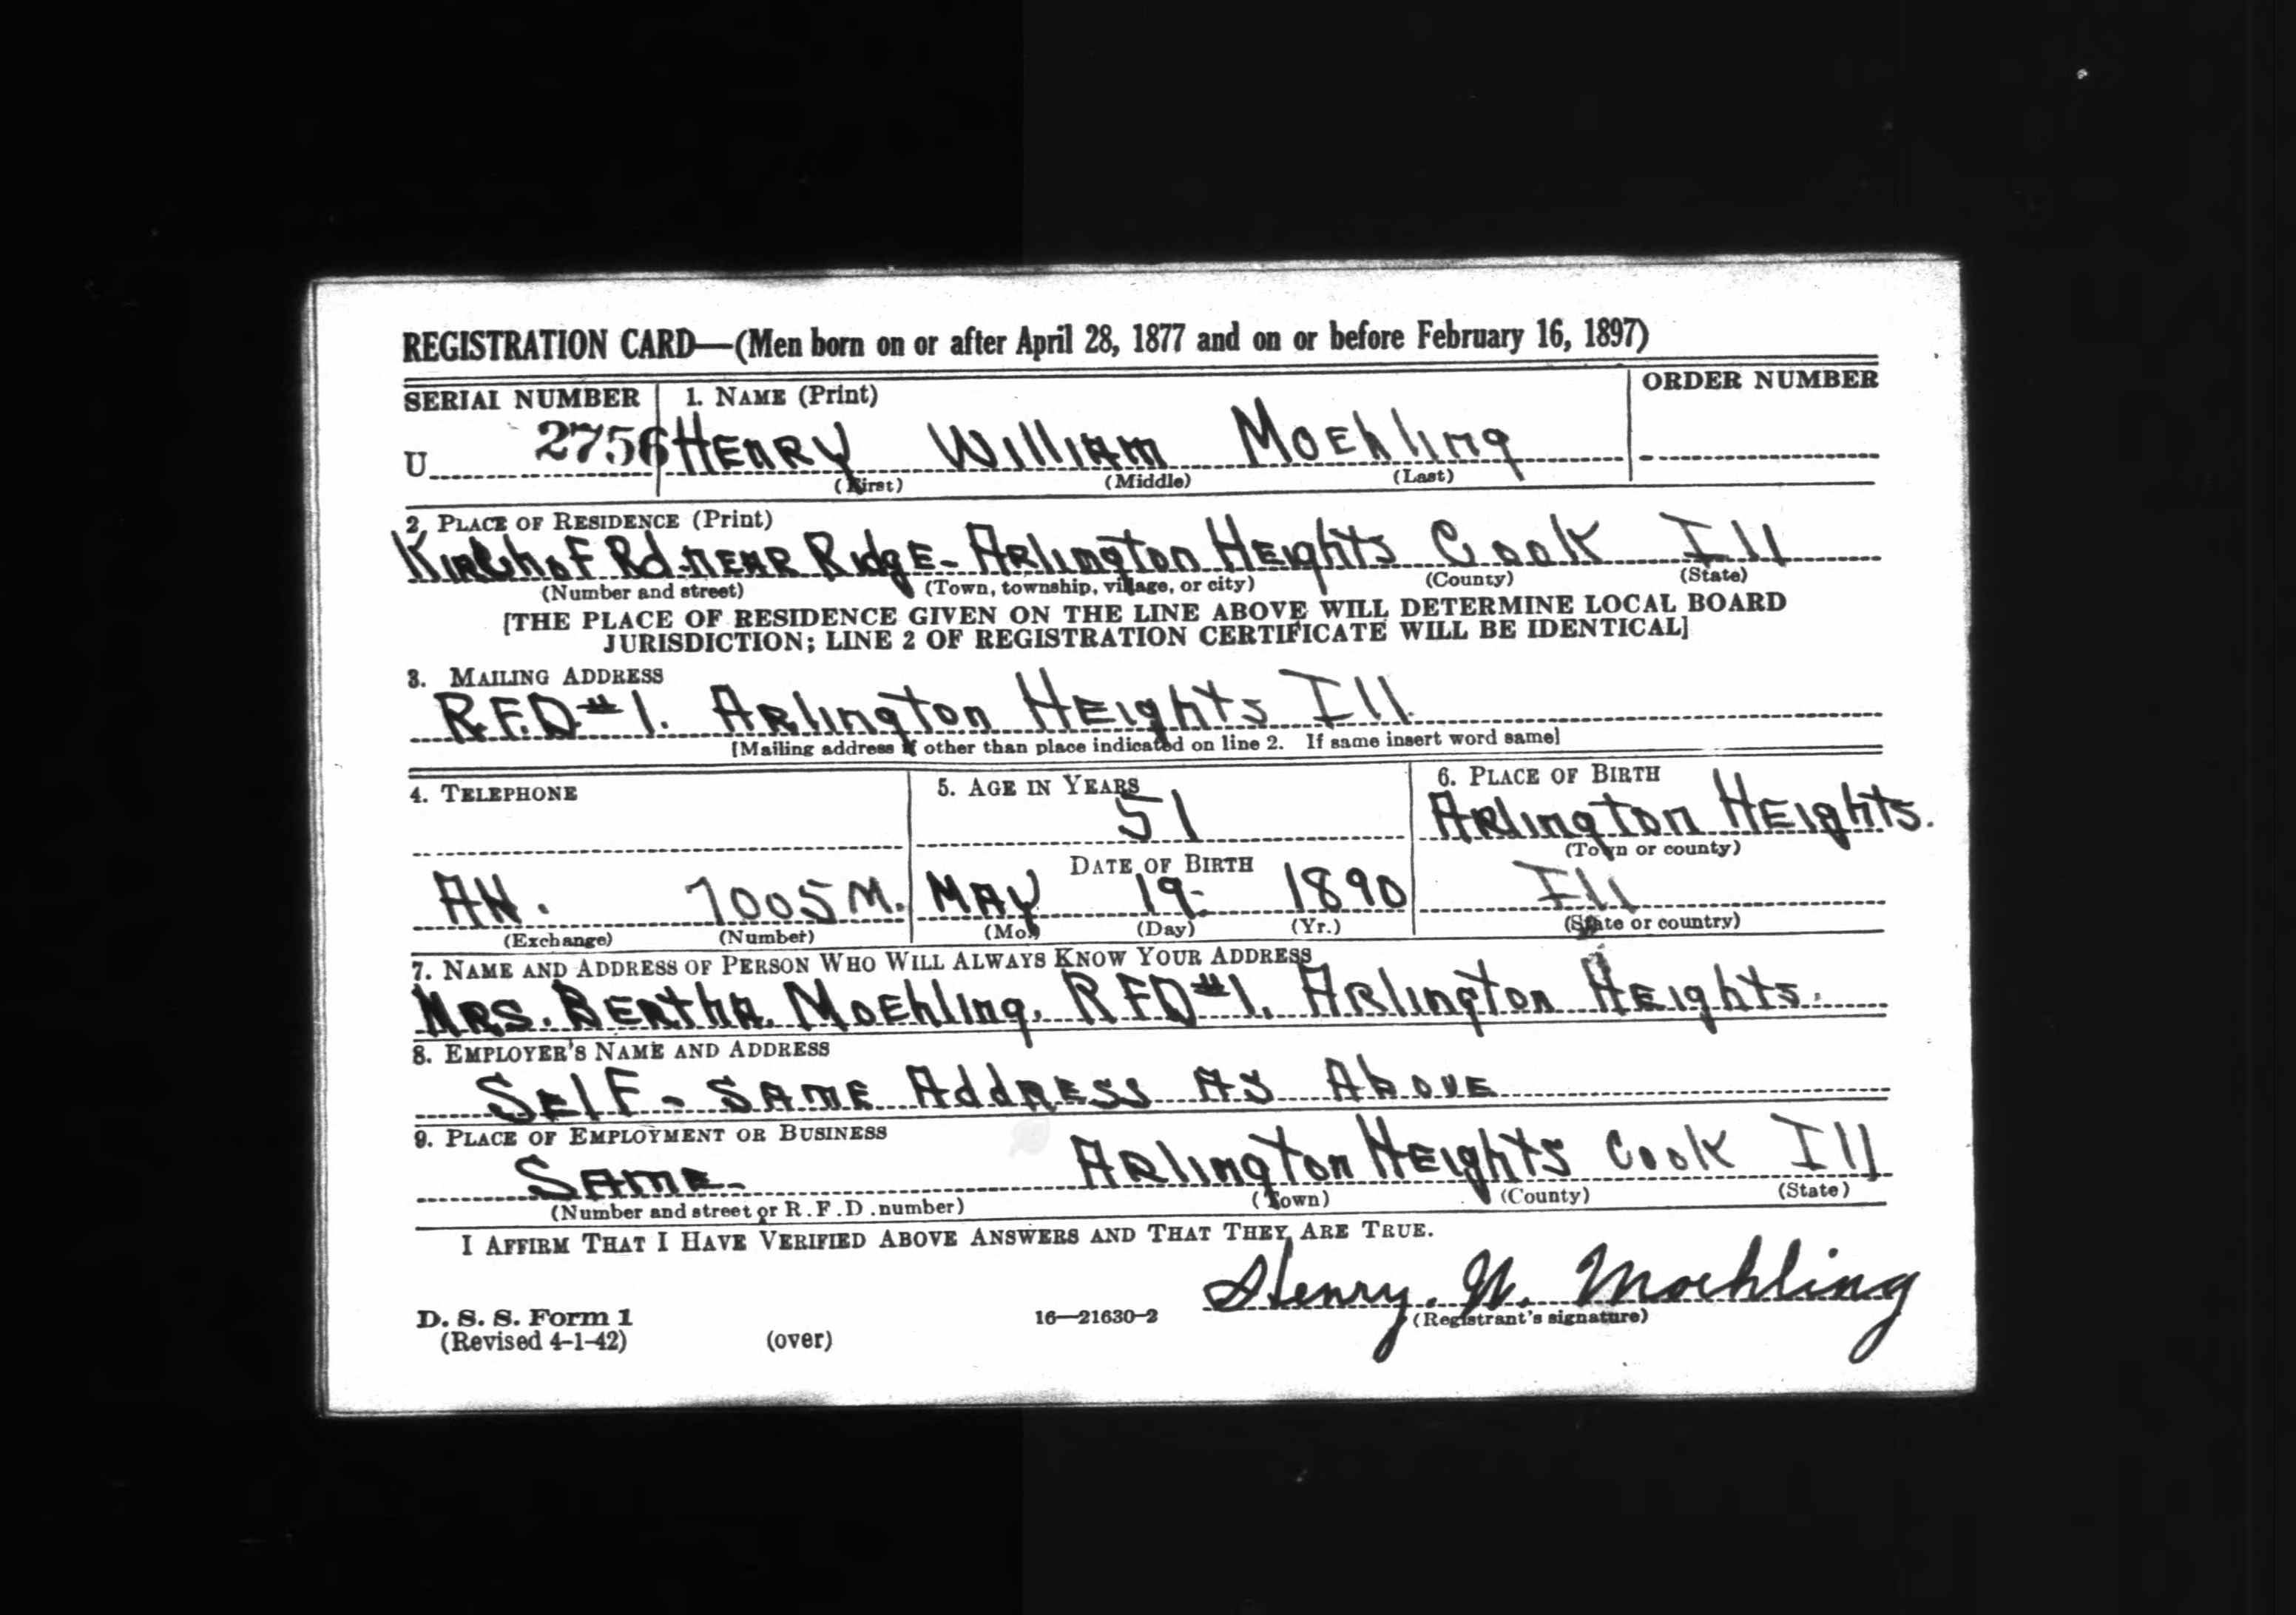 REGISTRATION CARD—(Men born on or after April 28, 1877 and on or before February 16, 1897)
SERIAL NUMBER 1. NAME (Print) ORDER NUMBER
U 2756 HENRY WILLIAM MOEHLING
(First) (Middle) (Last)
2. PLACE OF RESIDENCE (Print)
KIRCHOF Rd. NEAR RIdgE- ARLINGTON HEIGHTS COOK ILL
(Number and street) (Town, township, village, or city) (County) (State)
[THE PLACE OF RESIDENCE GIVEN ON THE LINE ABOVE WILL DETERMINE LOCAL BOARD
JURISDICTION; LINE 2 OF REGISTRATION CERTIFICATE WILL BE IDENTICAL]
3. MAILING ADDRESS
R.F.D #1. ARLINGTON HEIGHTS ILL
[Mailing address if other than place indicated on line 2. If same insert word same]
4. TELEPHONE 5. AGE IN YEARS 6. PLACE OF BIRTH
51 ARLINGTON HEIGHTS.
(Town or county)
DATE OF BIRTH
AH. 7005M. MAY 19- 1890 ILL
(Exchange) (Number) (Mo.) (Day) (Yr.) (State or country)
7. NAME AND ADDRESS OF PERSON WHO WILL ALWAYS KNOW YOUR ADDRESS
MRS. BERTHA. MOEHLING. RFD #1. ARLINGTON HEIGHTS.
8. EMPLOYER'S NAME AND ADDRESS
SELF - SAME ADDRESS AS ABOVE
9. PLACE OF EMPLOYMENT OR BUSINESS
SAME- ARLINGTON HEIGHTS COOK ILL
(Number and street or R. F. D. number) (Town) (County) (State)
I AFFIRM THAT I HAVE VERIFIED ABOVE ANSWERS AND THAT THEY ARE TRUE.
Henry. W. Moehling
D. S. S. Form 1 16—21630-2 (Registrant's signature)
(Revised 4-1-42) (over)